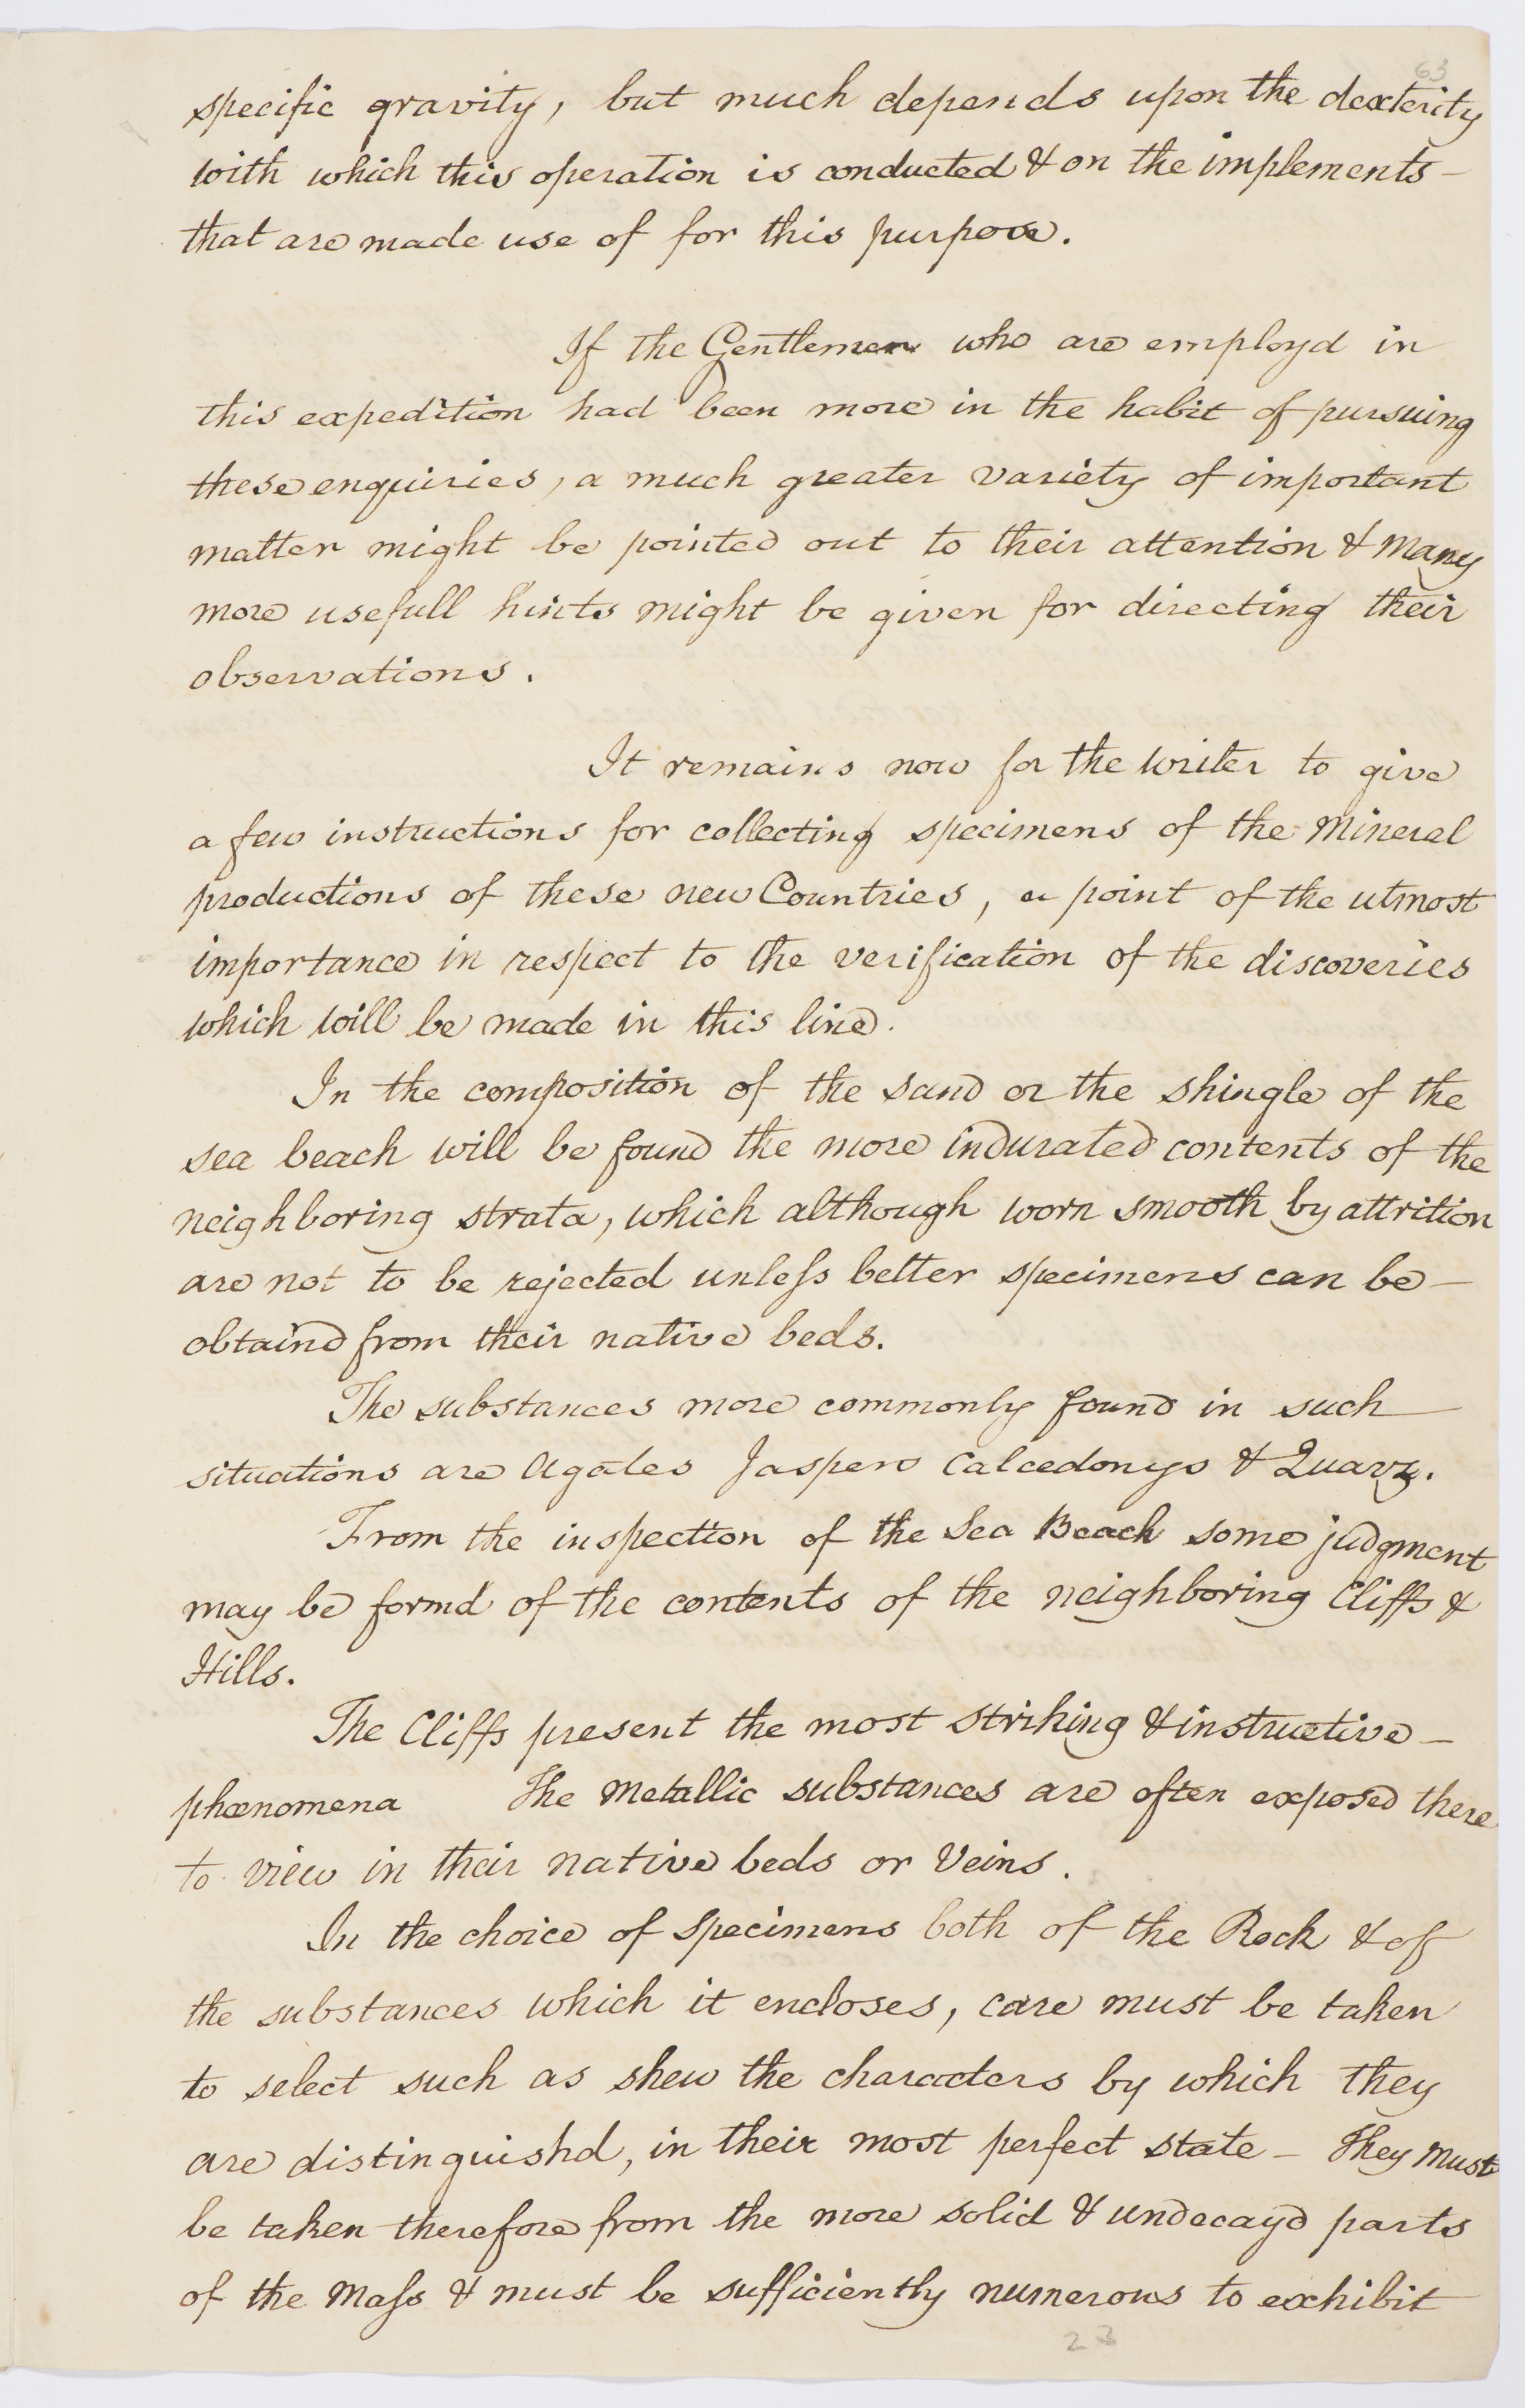 63
specific gravity, but much depends upon the dexterity
with which this operation is conducted & on the implements –
that are made use of for this purpose.
If the Gentlemen who are employd in
this expedition had been more in the habit of pursuing
these enquiries, a much greater variety of important
matter might be pointed out to their attention & Many
more usefull hints might be given for directing their
observations.
It remains now for the writer to give
a few instructions for collecting specimens of the Mineral
productions of these new Countries, a point of the utmost
importance in respect to the verification of the discoveries
which will be made in this line.
In the composition of the sand or the shingle of the
sea beach will be found the more indurated contents of the
neighboring strata, which although worn smooth by attrition
are not to be rejected unless better specimens can be –
obtaind from their native beds.
The substances more commonly found in such
situations are Agates Jaspers Calcedonys & Quarz.
From the inspection of the Sea Beach some judgment
may be formd of the contents of the neighboring Cliffs &
Hills.
The Cliffs present the most striking & instructive –
phœnomena The Metallic substances are often exposed there
to view in their native beds or Veins.
In the choice of specimens both of the Rock & of
the substances which it encloses, care must be taken
to select such as shew the characters by which they
are distinguishd, in their most perfect state – They Must
be taken therefore from the more solid & undecayd parts
of the Mass & must be sufficiently numerous to exhibit
23